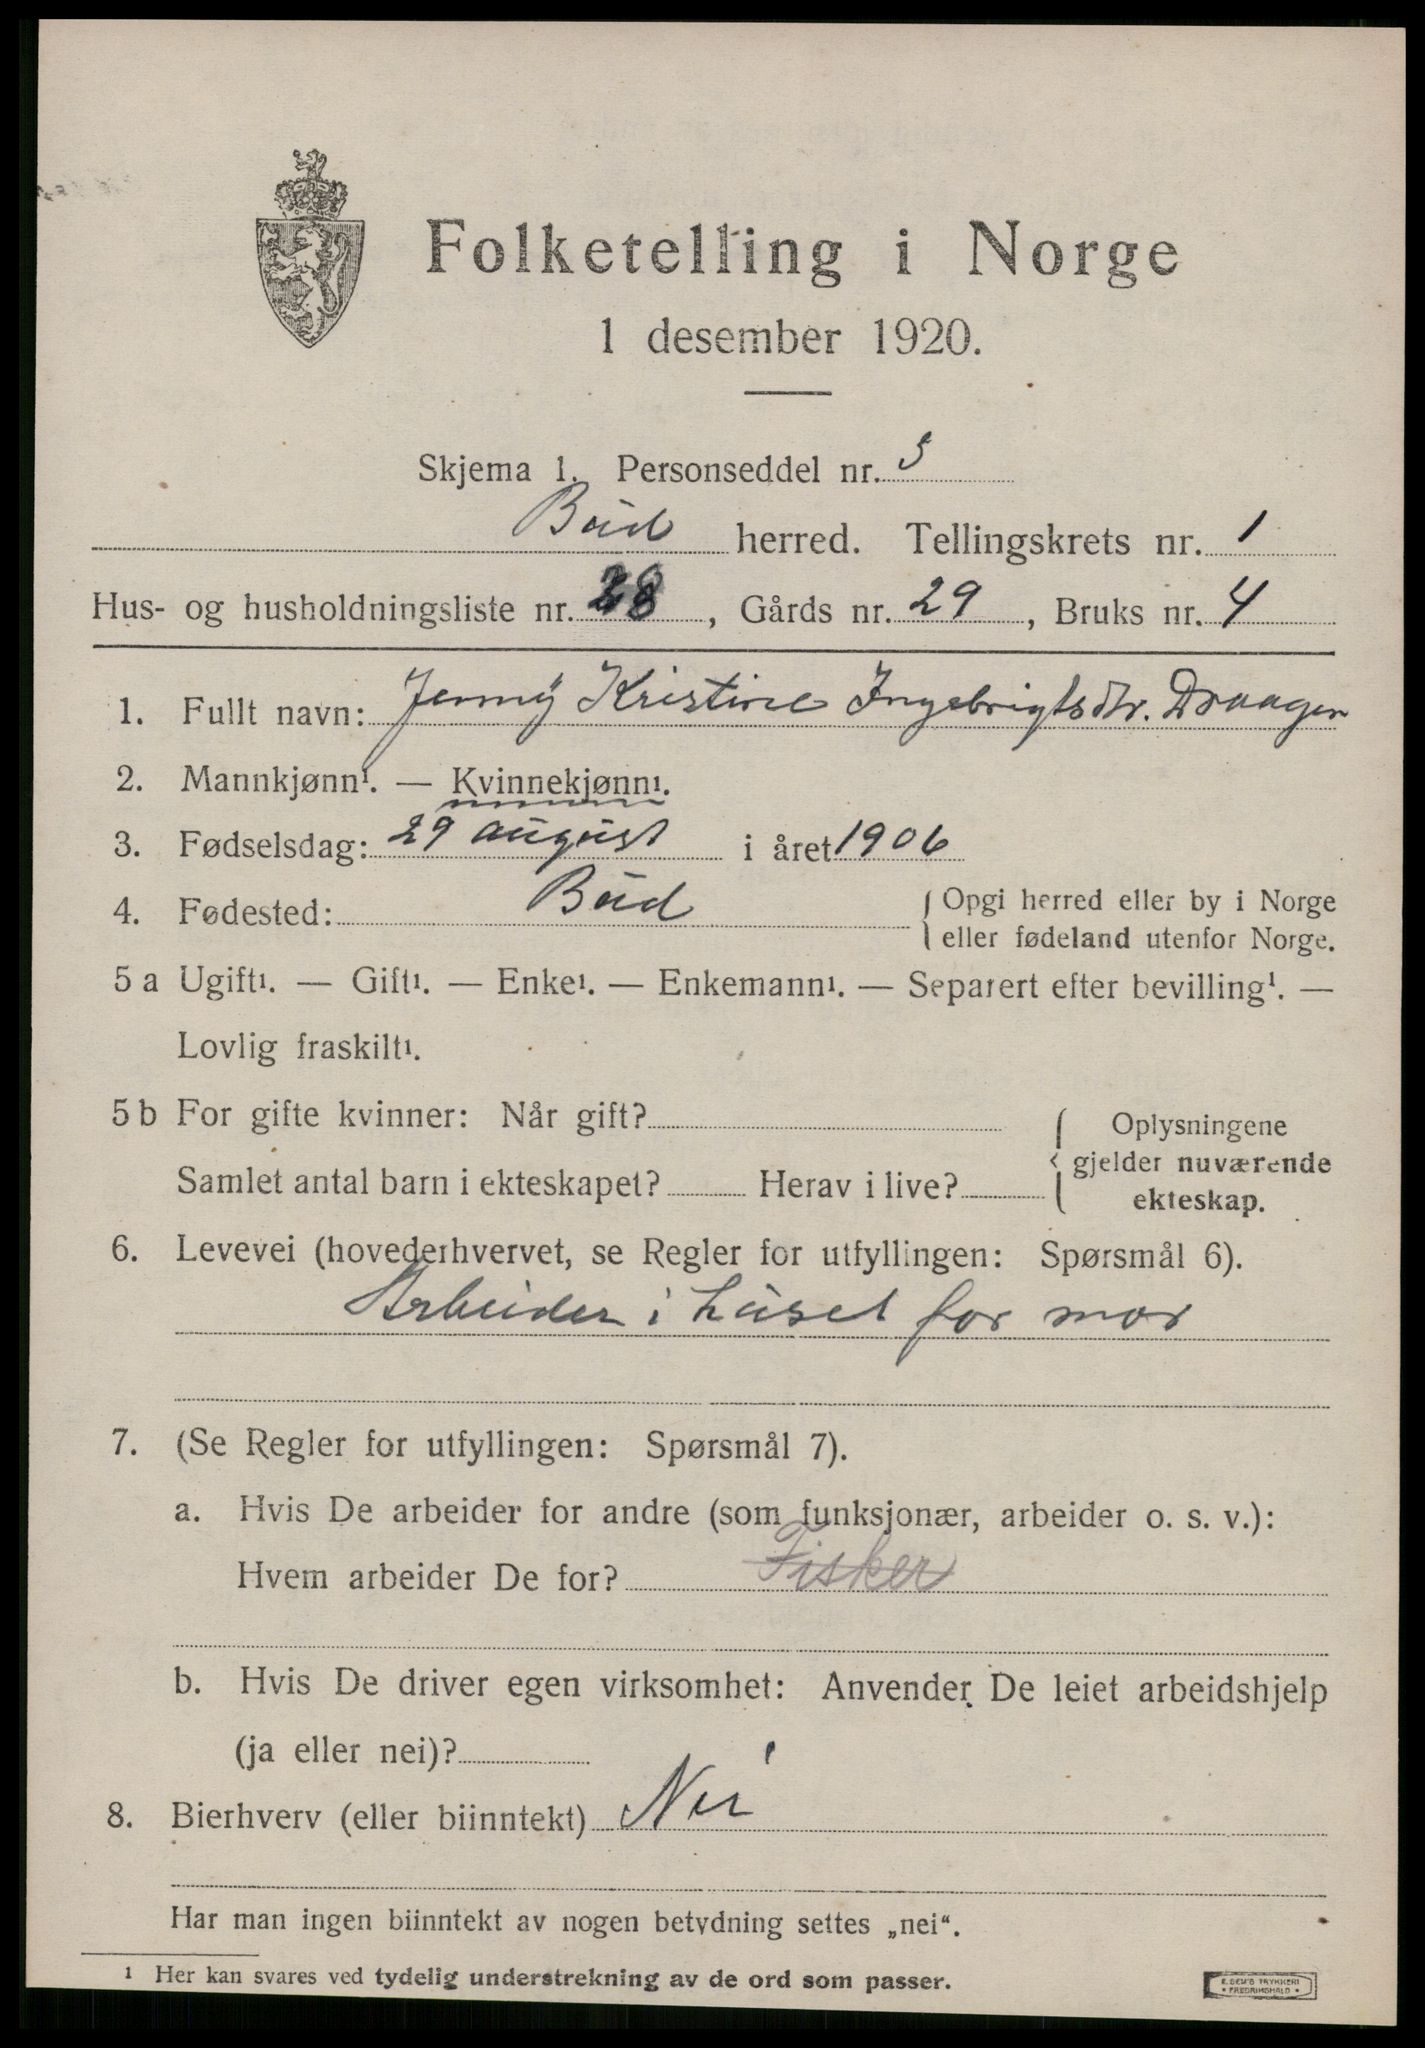 Folketelling i Norge
1 desember 1920.
Skjema 1. Personseddel nr. 5
Bud herred. Tellingskrets nr. 1
Hus- og husholdningsliste nr. 28, Gårds nr. 29, Bruks nr. 4
1. Fullt navn: Jenny Kristine Ingebrigtsdtr. Draagen
2. Mannkjønn¹. — Kvinnekjønn¹.
3. Fødselsdag: 29 august i året 1906
4. Fødested: Bud { Opgi herred eller by i Norge
eller fødeland utenfor Norge.
5 a Ugift¹. — Gift¹. — Enke¹. — Enkemann¹. — Separert efter bevilling¹. —
Lovlig fraskilt¹.
5 b For gifte kvinner: Når gift? { Oplysningene
gjelder nuværende
Samlet antal barn i ekteskapet? Herav i live?
ekteskap.
6. Levevei (hovederhvervet, se Regler for utfyllingen: Spørsmål 6).
Arbeider i huset for mor
7. (Se Regler for utfyllingen: Spørsmål 7).
a. Hvis De arbeider for andre (som funksjonær, arbeider o. s. v.):
Hvem arbeider De for? Fisker
b. Hvis De driver egen virksomhet: Anvender De leiet arbeidshjelp
(ja eller nei)?
8. Bierhverv (eller biinntekt) Nei
Har man ingen biinntekt av nogen betydning settes „nei“.
¹ Her kan svares ved tydelig understrekning av de ord som passer.
E. SEM'S TRYKKERI
• FREDRIKSHALD •